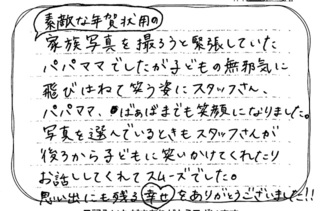 素敵な年賀状用の
家族写真を撮ろうと緊張していた
パパママでしたが子どもの無邪気に
飛びはねて笑う姿にスタッフさん、
パパママ、ばぁばまでも笑顔になりました。
写真を選んでいるときもスタッフさんが
後ろから子どもに笑いかけてくれたり
お話ししてくれてスムーズでした。
思い出にも残る幸せをありがとうございました!!